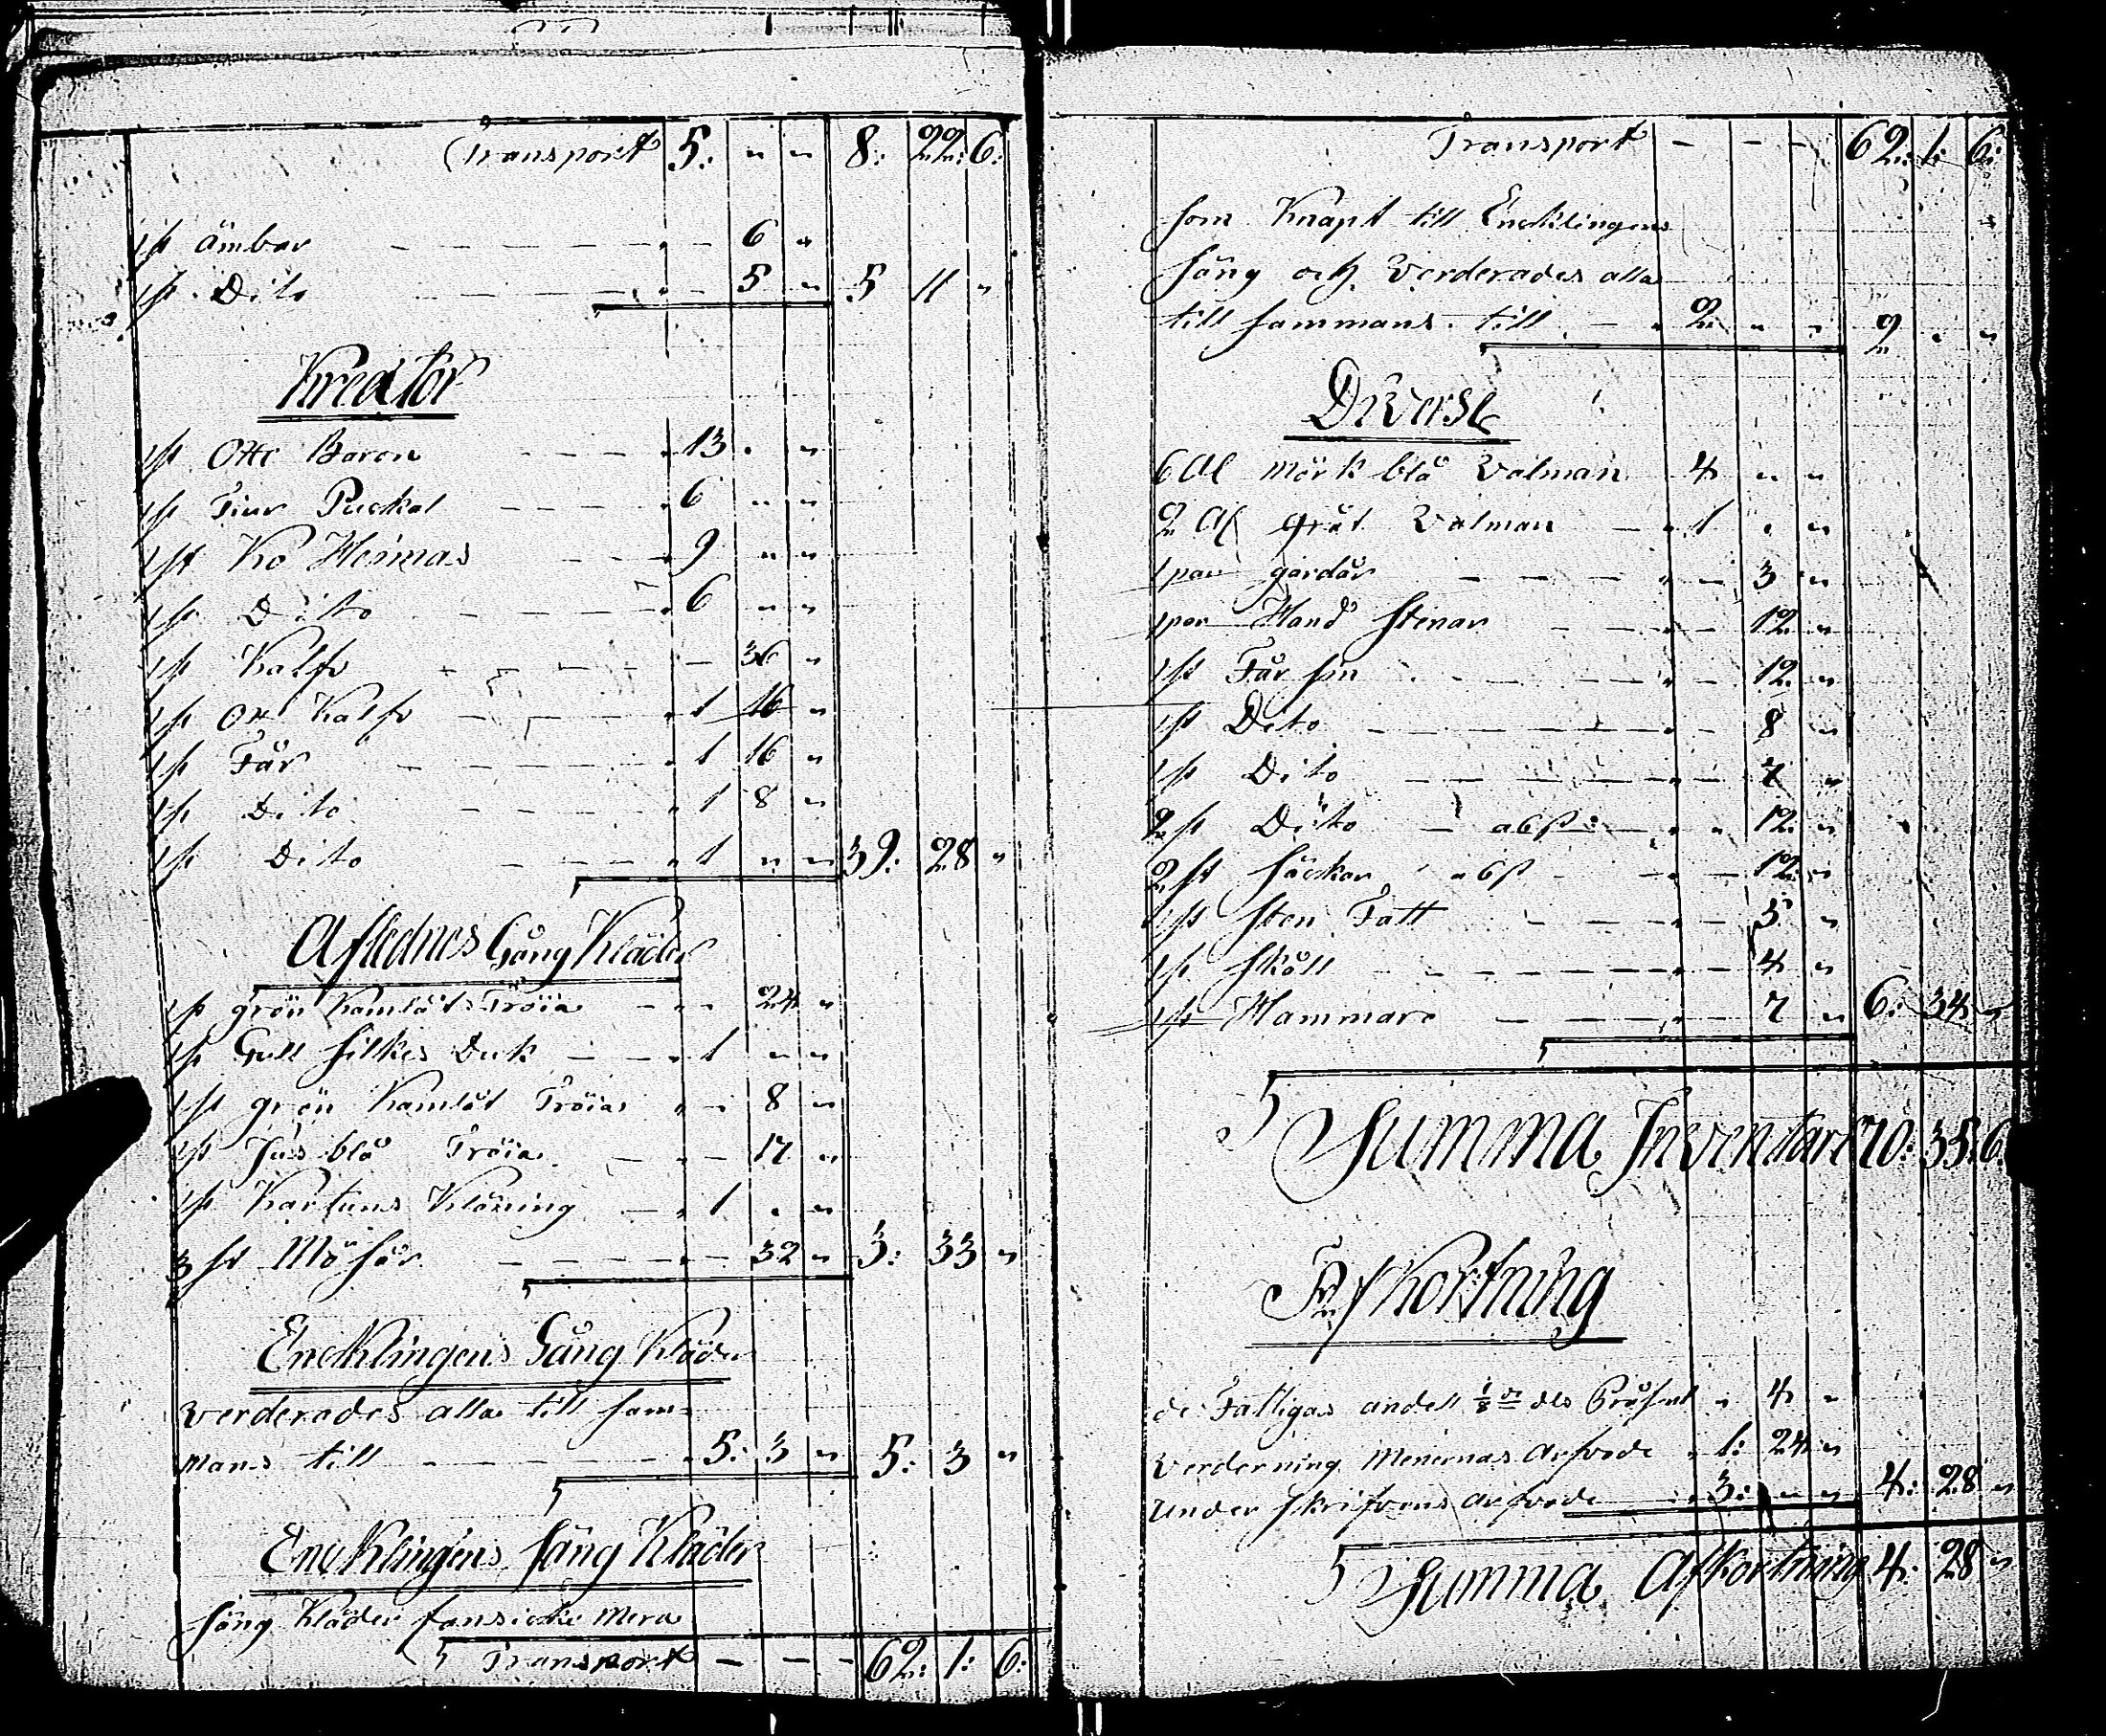 Transport 5: " " 8: 22: 6:
1 st ämbar - - - " - 6 "
1 st Dito - - - " - 5 " 5 11 "
Kreatur
1 st Oxe Baron - - - " 13 " "
1 st Tiur Puckal - - - " 6 " "
1 st Ko Heimas - - " 9 " "
1 st Dito - - - " 6 " "
1 st Kalfv - - - - 36 "
1 st Oxe Kalfv - - - " 1 16 "
1 st Får - - - " 1 16 "
1 st Dito - - - " 1 8 "
1 st Dito - - - " 1 " " 39: 28 "
Aflednes Gång Kläder
1 st grön Kamlåts Tröia - - " 24 "
1 st Gull silkes Duk - - " 1 " "
1 st grön Kamlåt Tröia " - 8 "
1 st Jus blå Tröia - - - 17 "
1 st Kartuns Kläning - " 1 " "
3 st Mösår - - - - 32 " 3: 33 "
Encklingens Gång Kläder
verderades alla till sam=
mans till - - - " 5: 3 " 5: 3 "
Encklingens säng Kläder
säng Kläder fans icke mera
Transport - - - 62: 1: 6:
Transport - - - 62: 1: 6:
som Knapt till Encklingens
säng och Verderades alla
till sammans till - " 2 " " 2 " "
Diverse
6 Al mörk blå Valman 4 " "
2 Al gråt Valman - " 1 " "
1 par gardår - - - " - 3 "
1 par Hand stenar - - - " - 12 "
1 st Får sin - - - " - 12 "
1 st Dito - - - " - 8 "
1 st Dito - - - " - 7 "
2 st Dito - a 6 st - " " 12 "
2 st säckar a 6 st - - - 12 "
1 st sten Fatt - - - " - 5 "
1 st skåll - - - " - 4 "
1 st Hammare - - - " 7 " 6: 34 "
Summa Inventari 70: 35: 6:
Afkortning
de Fattigas andell 1/8 de dls Pråsent " 4 "
Verderning Menernas arfvode " 1: 24 "
Under skrifvens arfvode " 3: " " 4: 28 "
Summa Afkortning 4: 28 "